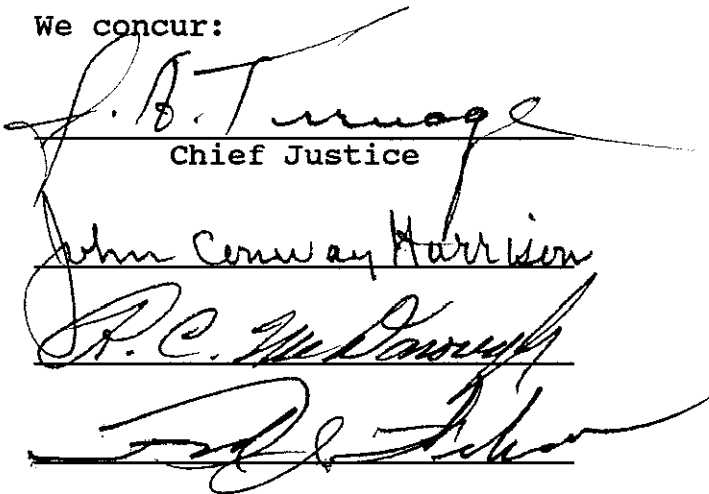 We concur:
J. A. Turnage
Chief Justice
John Conway Harrison
R. C. McDonough